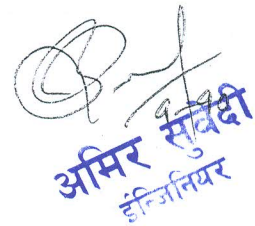 अमिर सुवेदी
इन्जिनियर